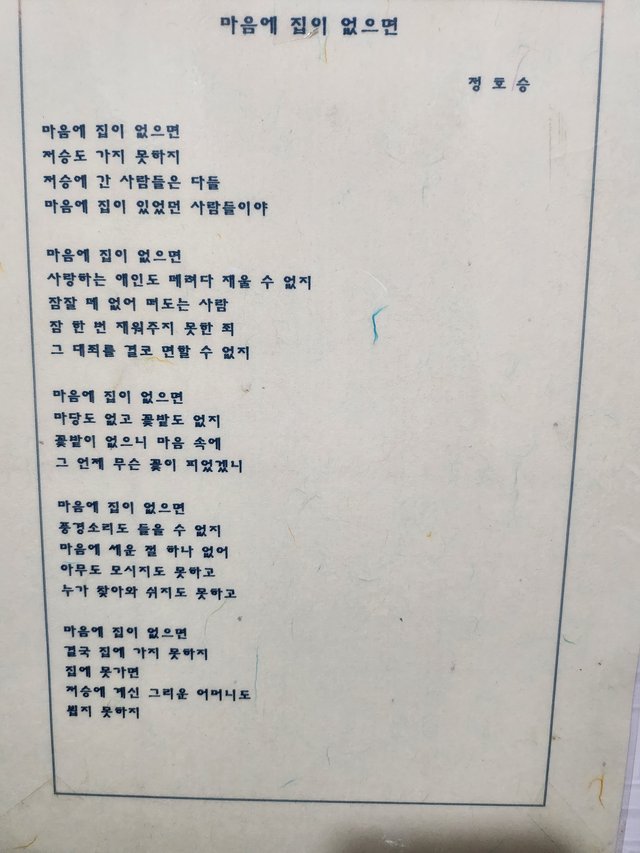 마음에 집이 없으면
정호승
마음에 집이 없으면
저승도 가지 못하지
저승에 간 사람들은 다들
마음에 집이 있었던 사람들이야
마음에 집이 없으면
사랑하는 애인도 데려다 재울 수 없지
잠잘 데 없어 떠도는 사람
잠 한 번 재워주지 못한 죄
그 대죄를 결코 면할 수 없지
마음에 집이 없으면
마당도 없고 꽃밭도 없지
꽃밭이 없으니 마음 속에
그 언제 무슨 꽃이 피었겠니
마음에 집이 없으면
풍경소리도 들을 수 없지
마음에 세운 절 하나 없어
아무도 모시지도 못하고
누가 찾아와 쉬지도 못하고
마음에 집이 없으면
결국 집에 가지 못하지
집에 못가면
저승에 계신 그리운 어머니도
뵙지 못하지